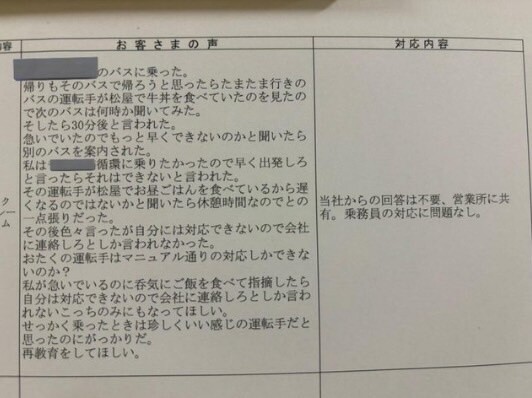 内容
お客さまの声
対応内容
のバスに乗った。
帰りもそのバスで帰ろうと思ったらたまたま行きの
バスの運転手が松屋で牛丼を食べていたのを見たの
で次のバスは何時か聞いてみた。
そしたら30分後と言われた。
急いでいたのでもっと早くできないのかと聞いたら
別のバスを案内された。
私は
循環に乗りたかったので早く出発しろ
と言ったらそれはできないと言われた。
その運転手が松屋でお昼ごはんを食べているから遅
くなるのではないかと聞いたら休憩時間なのでとの
一点張りだった。
その後色々言ったが自分には対応できないので会社
に連絡しろとしか言われなかった。
おたくの運転手はマニュアル通りの対応しかできな
いのか？
私が急いでいるのに呑気にご飯を食べて指摘したら
自分は対応できないので会社に連絡しろとしか言わ
れないこっちのみにもなってほしい。
せっかく乗ったときは珍しくいい感じの運転手だと
思ったのにがっかりだ。
再教育をしてほしい。
クレーム
当社からの回答は不要、営業所に共
有。乗務員の対応に問題なし。